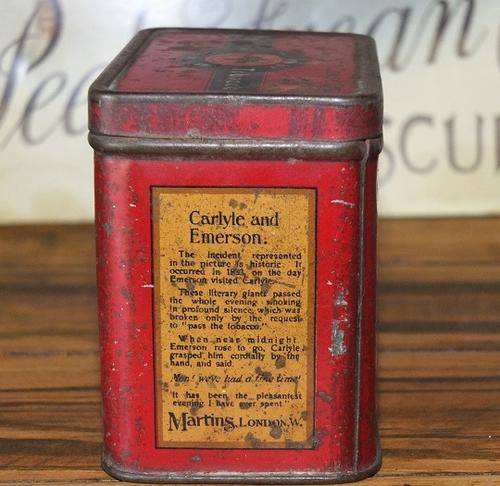 Peek Frean
BISCUI
Carlyle and
Emerson.
The incident represented
in the picture is historic. It
occurred in 1833, on the day
Emerson visited Carlyle.
These literary giants passed
the whole evening smoking
in profound silence, which was
broken only by the request
to "pass the tobacco."
When near midnight
Emerson rose to go, Carlyle
grasped him cordially by the
hand, and said,
Mon! we've had a fine time
"It has been the pleasantest
evening I have ever spent."
Martins, LONDON, W.